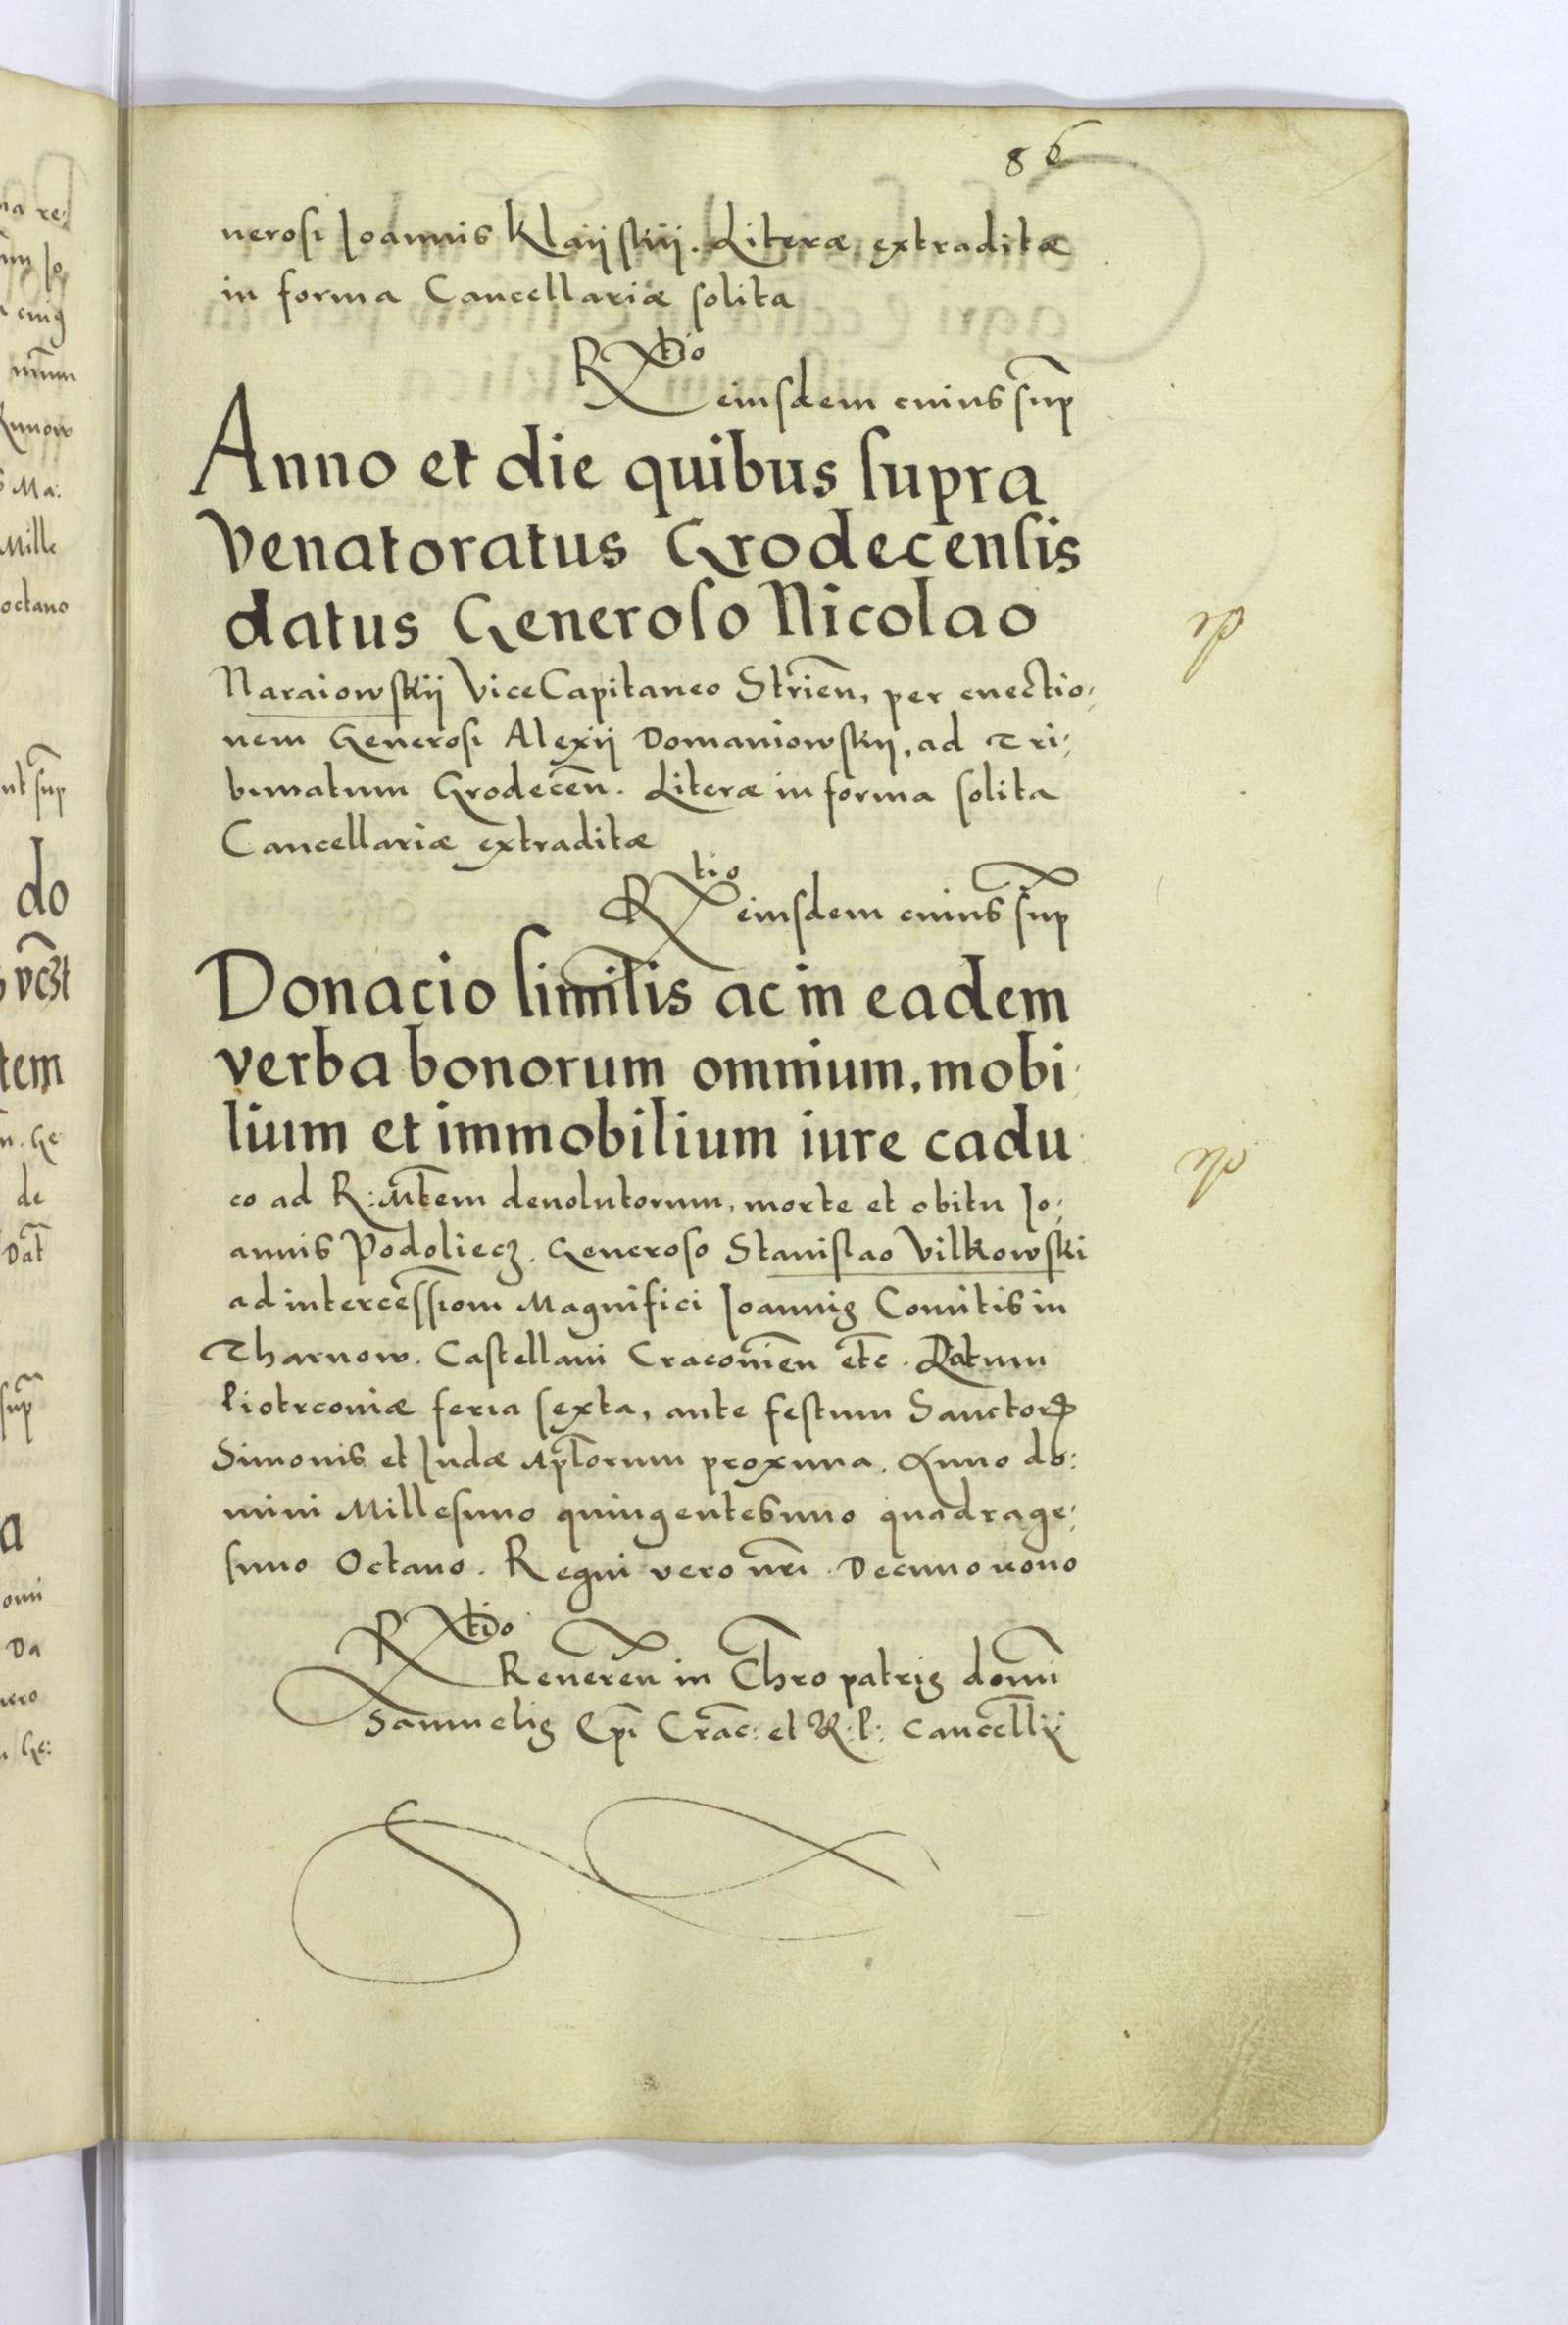 86
nerosi Joannis Klaijskij. Literæ extraditæ
in forma Cancellariæ solita
Rtio eiusdem cuius sup̃
Anno et die quibus supra
Venatoratus Grodecensis
datus Generoso Nicolao
Naraiowskij ViceCapitaneo Strieñ, per euectio-
nem Generosi Alexij Domaniowskij, ad Tri-
bunatum Grodeceñ. Literæ in forma solita
Cancellariæ extraditæ
Rtio eiusdem cuius sup̃
Donacio similis ac in eadem
verba bonorum omnium, mobi-
lium et immobilium iure cadu-
co ad R: Mtem deuolutorum, morte et obitu Jo-
annis Podoliecz. Generoso Stanislao Vilkowski
ad intercessiom Magnifici Joannis Comitis in
Tharnow. Castellani Cracoñien etc̃. Datum
Piotrconiæ feria sexta, ante festum Sanctorꝝ
Simonis et Judæ Aptorum proxima. Anno do-
mini Millesimo quingentesimo quadrage-
simo Octauo. Regni vero nr̃i Decimo nono
Rtio Reuereñ in Chr̃o patris domi
Samuelis Ep̃i Crac̃: et R: P: Cancellẏ